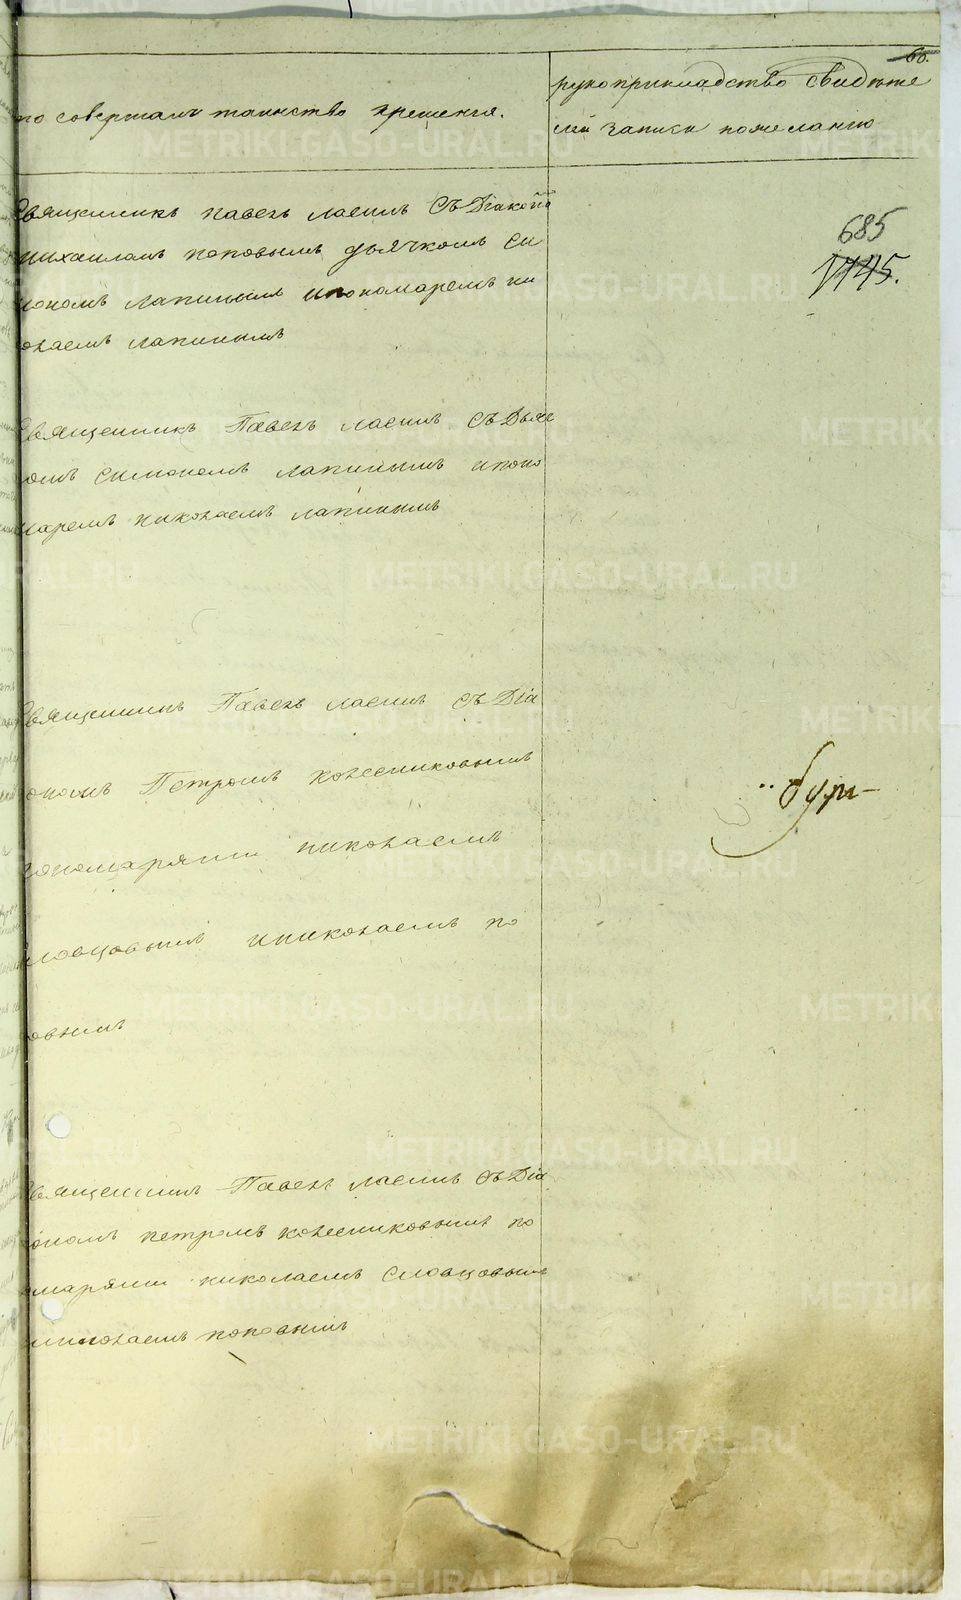 60.
то совершалъ таинство крещенія.
рукоприкладство свидѣте
лей записи пожеланію
685
1145.
Священникъ павелъ ласинъ съ Діакон
михаиломъ поповымъ дьячкомъ си
мономъ лапинымъ ипономаремъ ни
колаемъ лапинымъ
Священникъ Павелъ ласинъ съ Дьяч
комъ симономъ лапинымъ ипоно
маремъ николаемъ лапинымъ
Священникъ Павелъ ласинъ съ Діа
кономъ Петромъ колесниковымъ
пономарями николаемъ
словцовымъ иниколаемъ по
повымъ
Священникъ Павелъ ласинъ съ Діа
кономъ петромъ колесниковымъ по
номарями николаемъ словцовымъ
иниколаемъ поповымъ
METRIKI.GASO-URAL.RU